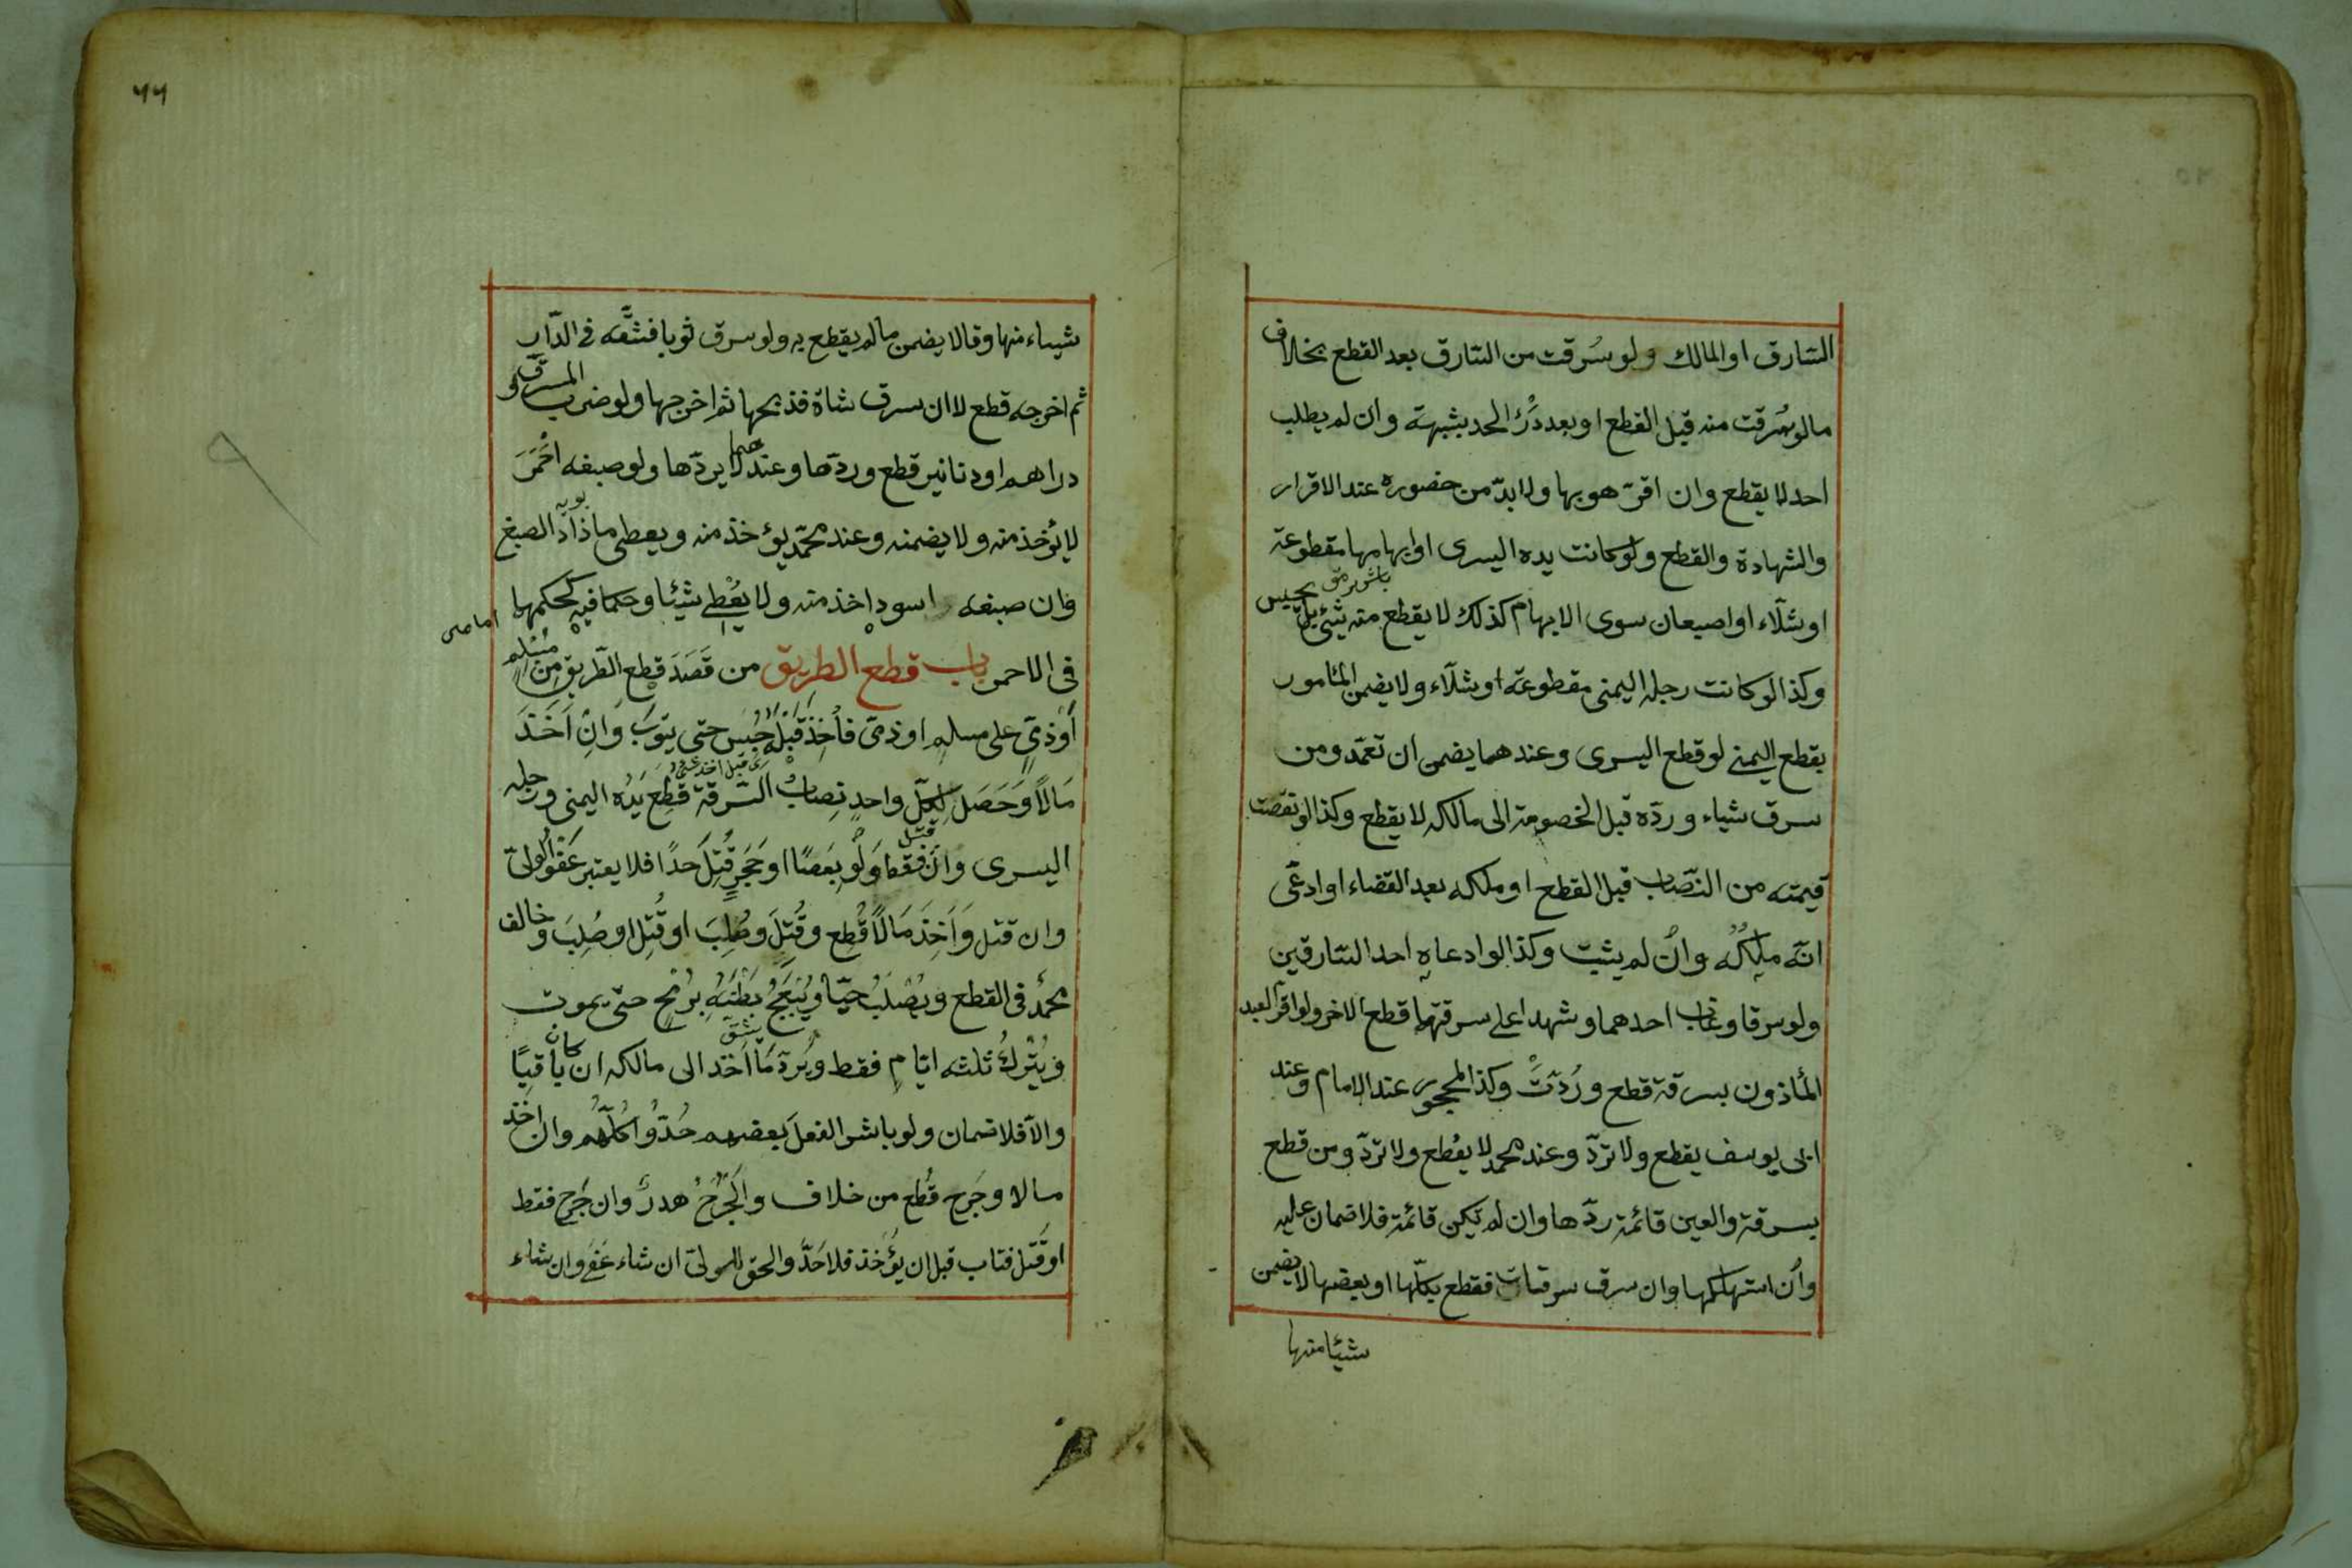 السّارق او المالك ولو سُرقت من السّارق بعد القطع بخلاف
مالو سُرقت منه قبل القطع او بعد دَرْء الحد بشبهة وان لم يطلب
احد لا يقطع وان اقرّ هو بها ولا بدّ من حضوره عند الاقرار
والشهادة والقطع ولو كانت يده اليسرى او ابهامها مقطوعة
او شلّاء او اصبعان سوى الابهام كذلك لا يقطع منه شئ بل يحبس
وكذا لو كانت رجله اليمنى مقطوعة او شلّاء ولا يضمن المأمور
بقطع اليمنى لو قطع اليسرى وعندهما يضمن ان تعمّد ومن
سرق شياء وردّه قبل الخصومة الى مالكه لا يقطع وكذا لو نقصت
قيمته من النّصاب قبل القطع او ملكه بعد القضاء او ادعى
انّه ملكُه وان لم يثبت وكذا لو ادعاه احد السّارقين
ولو سرقا وغاب احدهما وشهدا على سرقتهما قطع الاخر ولو اقر العبد
المأذون بسرقة قطع ورُدّتْ وكذا المحجور عند الامام وعند
ابى يوسف يقطع ولا تردّ وعند محمد لا يقطع ولا تردّ ومن قطع
بسرقة والعين قائمة ردّها وان لم تكن قائمة فلا ضمان عليه
وان استهلكها وان سرق سرقات فقطع بكلّها او بعضها لا يضمن
شيئا منها
٦٦
شيىاء منها وقالا يضمن مالم يقطع به ولو سرق ثوبا فشقّه فى الدّار
ثم اخرجه قطع لا ان سرق شاة فذبحها ثم اخرجها ولو ضرب المسروق
دراهم او دنانير قطع وردّها وعندهما لا يردّها ولو صبغه احْمَرَ
لا يُؤخذ منه ولا يضمنه وعند محمّد يؤخذ منه ويعطى ما زاد الصبغ
وان صبغه اسود اخذ منه ولا يُعْطى شيئا وحكما فيه كحكمها
فى الاحمر باب قطع الطريق من قَصَدَ قطع الطّريق من مُسْلم
أوْ ذمّىٍ على مسلم او ذمّى فأُخِذَ قَبْلَه حُبِسَ حتى يتوبَ وَانْ اَخَذَ
مَالًا وَحَصَلَ لِكلّ واحدٍ نِصابُ السّرقة قُطِعَ يَدُه اليمنى ورجله
اليسرى وان قتل فقط وَلَوْ بِعَصًا او حَجَرٍ قُتِلَ حَدًا فلا يعتبر عَفْوُ الولىّ
وان قتل وَاَخَذَ مَالًا قُطِع وقُتِلَ وصُلِبَ او قُتِلَ او صُلِبَ وخالف
محمّد فى القطع ويُصْلَبُ حيّا ويُبْعَجُ بَطْنُه بِرُمْحٍ حتّى يموت
ويُتْرَكُ ثلثه ايّامٍ فقط ويُردّ مَا اَخَذ الى مالكه ان كان باقيًا
والّا فلا ضمان ولو باشر الفعلَ بعضهم حُدّوا كُلّهُم وان اخذ
مالا وجَرح قُطع من خلاف والجَرْحُ هدرٌ وان جَرح فقط
او قَتل فتاب قبل ان يؤخذ فلا حَدّ والحق للولىّ ان شاء عَفَى وان شاء